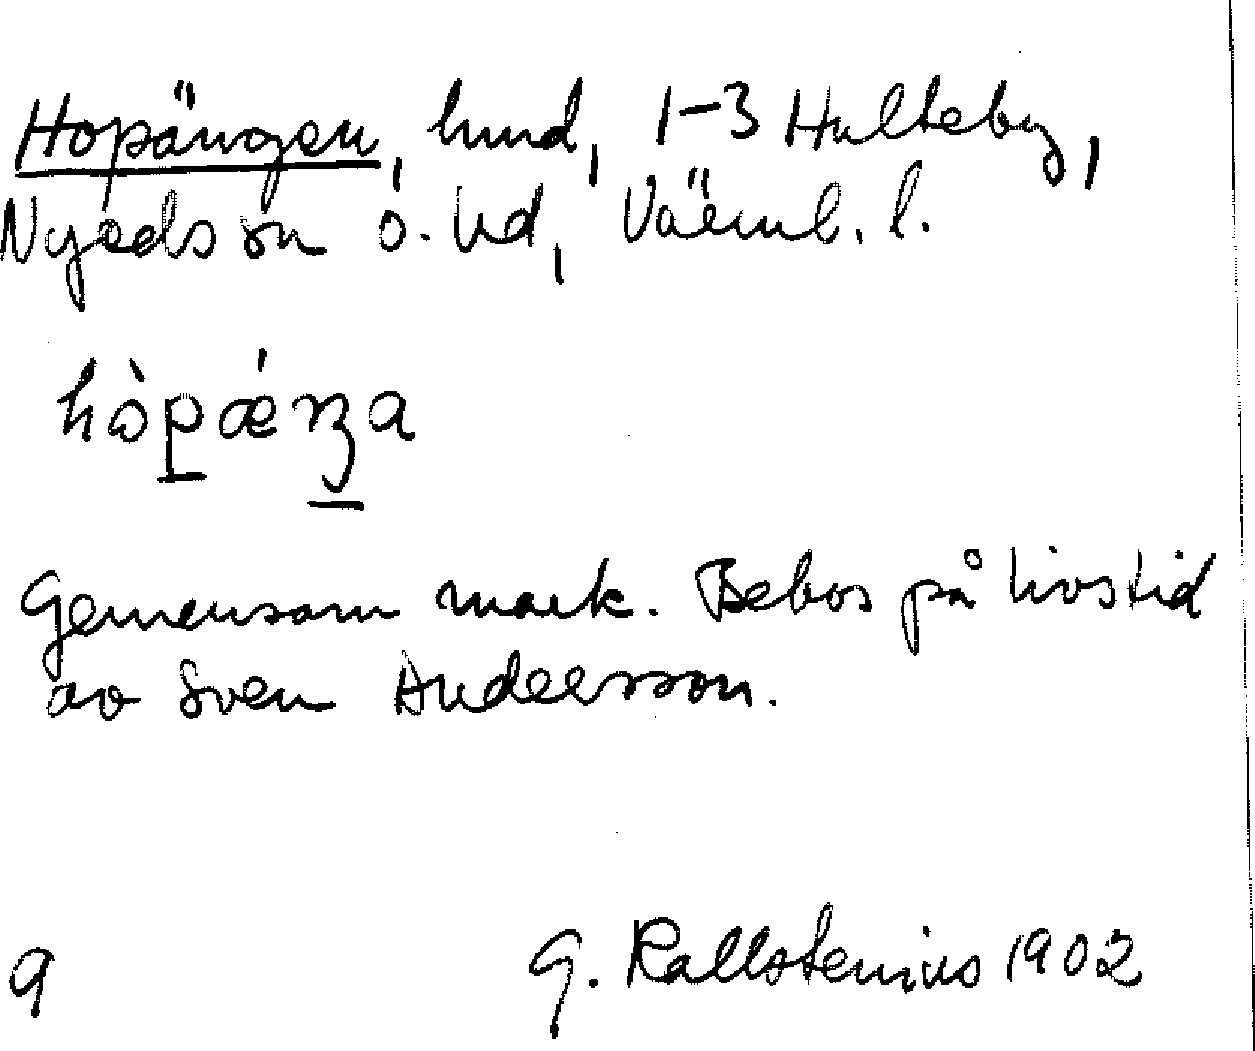 Hopängen, hmd, 1-3 Hulteby,
Nyeds sn Ö. hd, Värml. l.
hòpǽŋa
Gemensam mark. Bebos på livstid
av Sven Andersson.
9 G. Kallstenius 1902